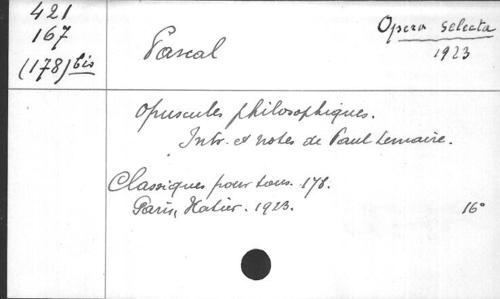 421
167
(178) bis
Pascal
Opera selecta
1923
Opuscules philosophiques.
Intr. et notes de Paul Lemaire.
Classiques pour tous. 178.
Paris, Hatier. 1923.
16°